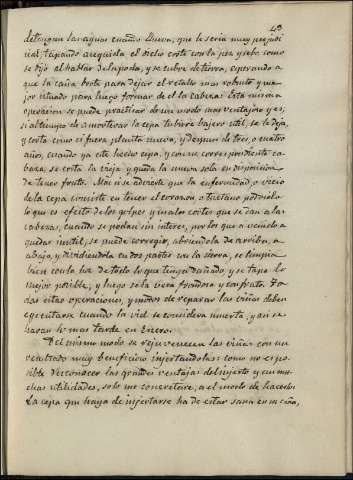 43
detengan las aguas cuando llueva, que le seria muy perjudi
cial, tapando enseguida el dicho corte con la pez y sebo como
se dijo al hablar de la poda, y se cubre de tierra, esperando a
que la caña brote para dejar el retallo mas robusto y me
jor situado para luego formar de el la cabeza. Esta misma
operacion se puede practicar de un modo mas ventajoso y es,
si al tiempo de amortecer la cepa tubiere bajero util, se le deja,
y corta como si fuera planta nueva, y despues de tres, o cuatro
años, cuando ya esté hecho cepa, y con su correspondiente ca
beza, se corta la vieja y queda la nueva sola en disposicion
de tener fruto. Mas si se advierte que la enfermedad, o vicio
de la cepa consiste en tener el corazon, o tuetano podrido
lo que es efecto de los golpes y malos cortes que se dan a las
cabezas, cuando se podan sin interes, por los que a veces
quedar inutil, se puede corregir, abriendola de arriba, a
abajo, y dividiendola en dos partes con la sierra, se limpia
bien con la hoz de todo lo que tenga dañado y se tapa lo
mejor posible, y luego sola viva frondosa y con fruto. To
das estas operaciones, y modos de reparar las viñas deben
egecutarse cuando la vid se considera muerta, y asi se
hacen lo mas tarde en Enero.
Del mismo modo se rejuvenecen las viñas con un
resultado muy beneficioso injertandolas: como no es po
sible desconocer las grandes ventajas del injerto y sus mu
chas utilidades, solo me concretaré, a el modo de hacerlo.
La cepa que haya de injertarse ha de estar sana en su caña,